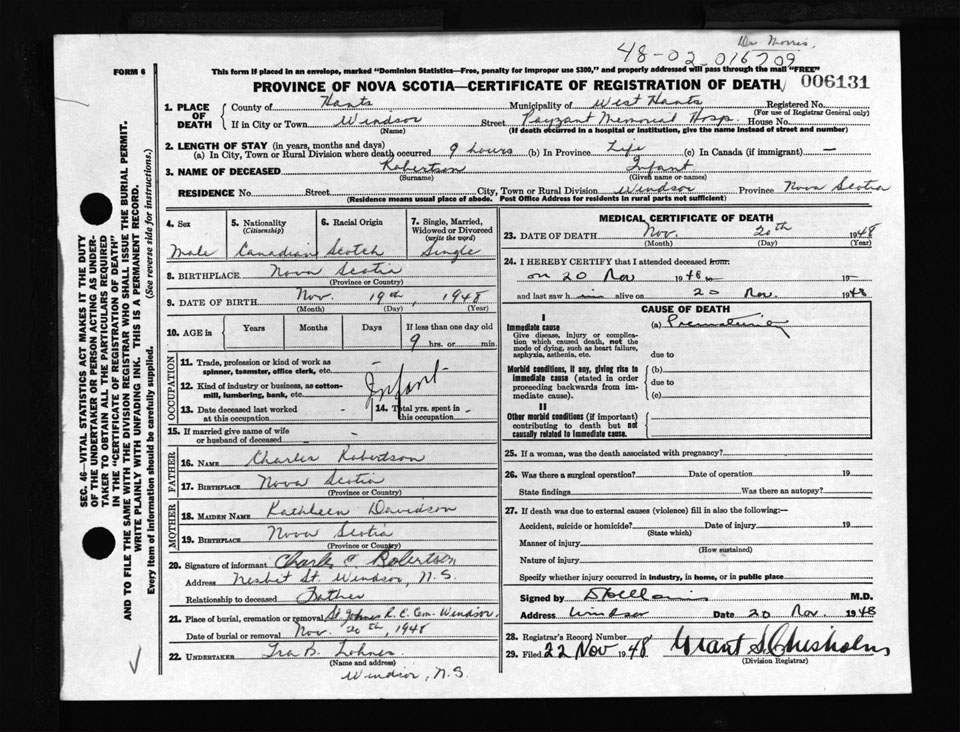 Dr Morris.
48-02-016709
FORM 6
This form if placed in an envelope, marked "Dominion Statistics—Free, penalty for improper use $300," and properly addressed will pass through the mail "FREE"
PROVINCE OF NOVA SCOTIA—CERTIFICATE OF REGISTRATION OF DEATH 006131
1. PLACE OF DEATH
County of Hants Municipality of West Hants Registered No.
(For use of Registrar General only)
If in City or Town Windsor Street Payzant Memorial Hosp. House No.
(Name) (If death occurred in a hospital or institution, give the name instead of street and number)
2. LENGTH OF STAY (in years, months and days)
(a) In City, Town or Rural Division where death occurred 9 hours (b) In Province Life (c) In Canada (if immigrant) —
3. NAME OF DECEASED Robertson Infant
(Surname) (Given name or names)
RESIDENCE No Street City, Town or Rural Division Windsor Province Nova Scotia
(Residence means usual place of abode. Post Office Address for residents in rural parts not sufficient)
4. Sex Male
5. Nationality (Citizenship) Canadian
6. Racial Origin Scotch
7. Single, Married, Widowed or Divorced (write the word) Single
8. BIRTHPLACE Nova Scotia
(Province or Country)
9. DATE OF BIRTH Nov. 19th, 1948
(Month) (Day) (Year)
10. AGE in Years Months Days If less than one day old
9 hrs. or min.
OCCUPATION
11. Trade, profession or kind of work as spinner, teamster, office clerk, etc. -
12. Kind of industry or business, as cotton-mill, lumbering, bank, etc. Infant
13. Date deceased last worked at this occupation -
14. Total yrs. spent in this occupation -
15. If married give name of wife or husband of deceased -
FATHER
16. NAME Charles Robertson
17. BIRTHPLACE Nova Scotia
(Province or Country)
MOTHER
18. MAIDEN NAME Kathleen Davidson
19. BIRTHPLACE Nova Scotia
(Province or Country)
20. Signature of informant Charles Robertson
Address Nesbit St. Windsor, N.S.
Relationship to deceased Father
21. Place of burial, cremation or removal St Johns R.C. Cem. Windsor.
Date of burial or removal Nov. 20th, 1948
22. UNDERTAKER Ira B. Lohnes.
(Name and address)
Windsor, N.S.
MEDICAL CERTIFICATE OF DEATH
23. DATE OF DEATH Nov. 20th 1948
(Month) (Day) (Year)
24. I HEREBY CERTIFY that I attended deceased from:
on 20 Nov 1948 to 19—
and last saw him alive on 20 Nov. 1948
CAUSE OF DEATH
I
Immediate cause
Give disease, injury or complication which caused death, not the mode of dying, such as heart failure, asphyxia, asthenia, etc.
(a) Prematurity
due to
Morbid conditions, if any, giving rise to immediate cause (stated in order proceeding backwards from immediate cause).
(b)
due to
(c)
II
Other morbid conditions (if important) contributing to death but not causally related to immediate cause.
25. If a woman, was the death associated with pregnancy?
26. Was there a surgical operation? Date of operation 19
State findings Was there an autopsy?
27. If death was due to external causes (violence) fill in also the following:—
Accident, suicide or homicide? Date of injury 19
(State which)
Manner of injury
(How sustained)
Nature of injury
Specify whether injury occurred in industry, in home, or in public place
Signed by M.D.
Address Windsor Date 20 Nov. 1948
28. Registrar's Record Number
29. Filed 22 Nov 1948 Grant S. Chisholm
(Division Registrar)
SEC. 46—VITAL STATISTICS ACT MAKES IT THE DUTY
OF THE UNDERTAKER OR PERSON ACTING AS UNDER-
TAKER TO OBTAIN ALL THE PARTICULARS REQUIRED
IN THE "CERTIFICATE OF REGISTRATION OF DEATH"
AND TO FILE THE SAME WITH THE DIVISION REGISTRAR WHO SHALL ISSUE THE BURIAL PERMIT.
WRITE PLAINLY WITH UNFADING INK. THIS IS A PERMANENT RECORD.
Every item of information should be carefully supplied. (See reverse side for instructions.)